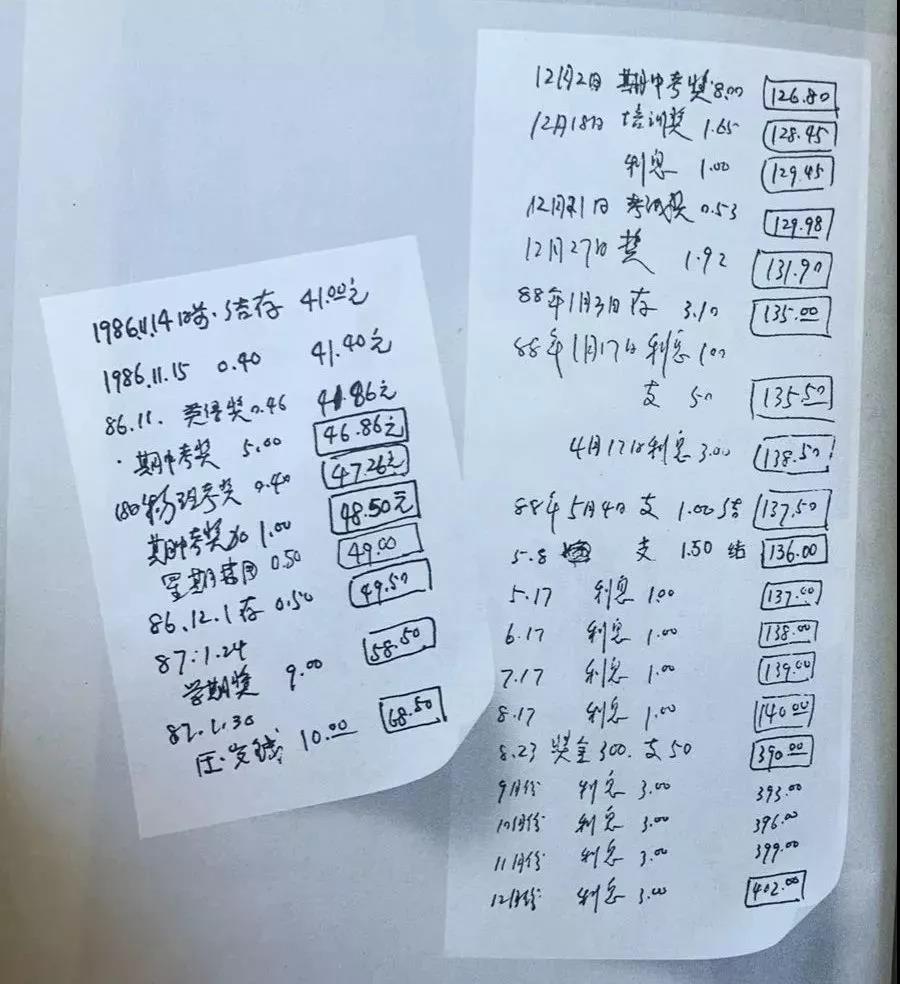 1986.11.14日前.结存 41.00元
1986.11.15 0.40 41.40元
86.11. 英语奖0.46 41.86元
期中考奖 5.00 46.86元
物理考奖 0.40 47.26元
期中考奖加 1.00 48.50元
星期 0.50 49.00
86.12.1存 0.50 49.50
87.1.24
学期奖 9.00 58.50
87.1.30
压岁钱 10.00 68.50
12月2日 期中考奖8.00 126.80
12月18日 培训奖 1.65 128.45
利息 1.00 129.45
12月21日 考试奖 0.53 129.98
12月27日 奖 1.92 131.90
88年1月3日存 3.10 135.00
88年1月17日利息1.00
支 50 135.50
4月17日利息 3.00 138.50
88年5月4日支 1.00结 137.50
5.8 支 1.50 结 136.00
5.17 利息 1.00 137.00
6.17 利息 1.00 138.00
7.17 利息 1.00 139.00
8.17 利息 1.00 140.00
8.23 奖金300.支50 390.00
9月份 利息 3.00 393.00
10月份 利息 3.00 396.00
11月份 利息 3.00 399.00
12月份 利息 3.00 402.00